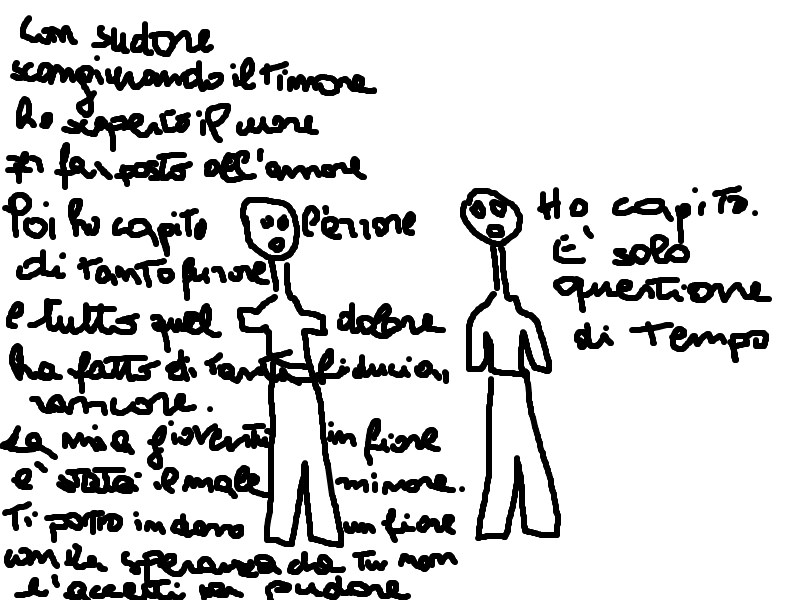 Con sudore
scongiurando il timore
ho scoperto il cuore
per far posto all'amore
Poi ho capito l'errore
di tanto furore
e tutto quel dolore
ha fatto di tanta fiducia,
rancore.
La mia gioventù in fiore
e' stata il male minore.
Ti porto in dono un fiore
con la speranza che tu non
l'accetti per pudore
Ho capito.
È solo
questione
di tempo